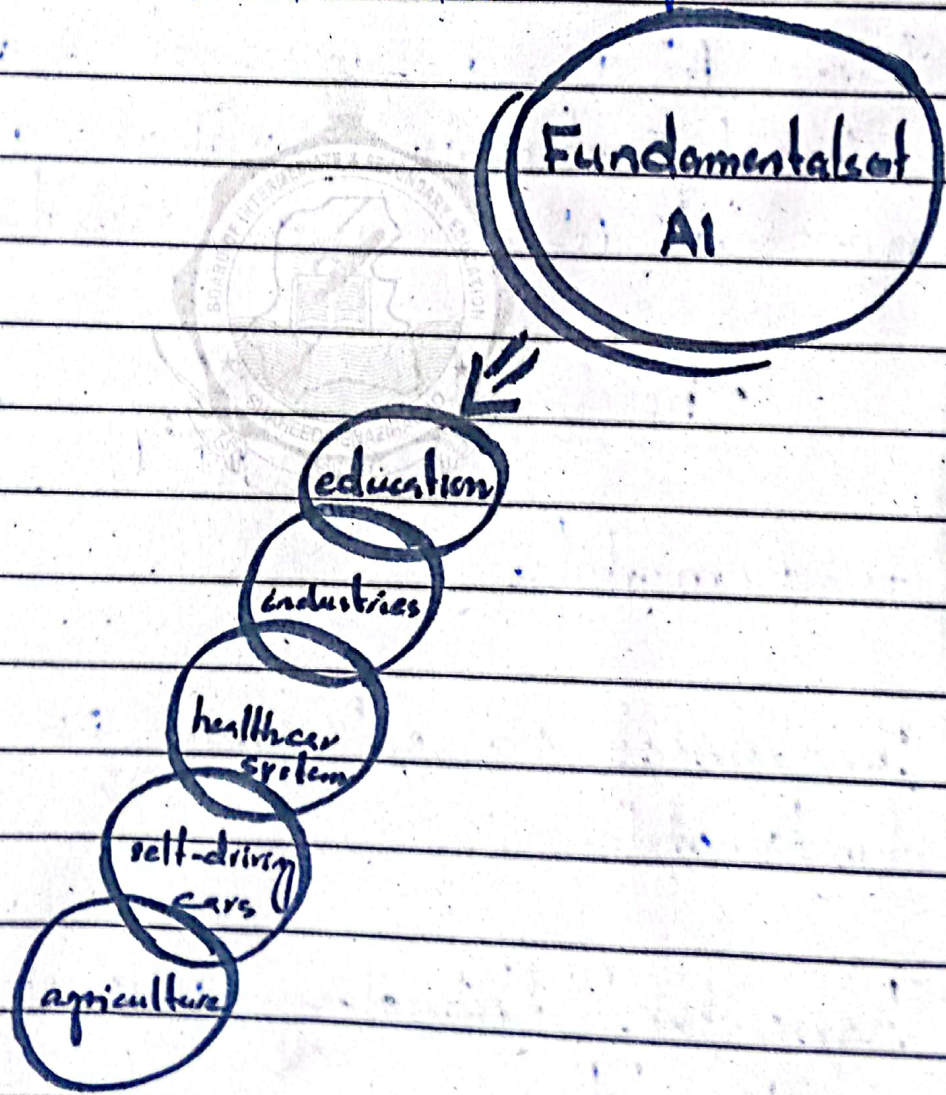 Fundamentals of
AI
education
industries
healthcar
system
self-driving
cars
agriculture
BOARD OF INTERMEDIATE & SECONDARY